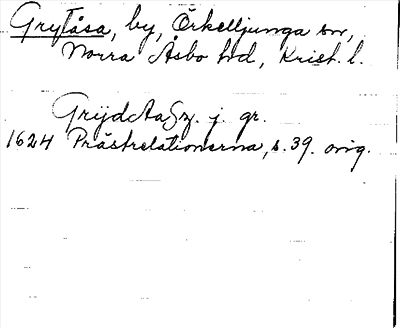 Grytåsa, by, Örkelljunga sn,
Norra Åsbo hd, Krist. l.
GrÿdAaSz. j. gr.
1624 Prästrelationerna, s. 39. orig.